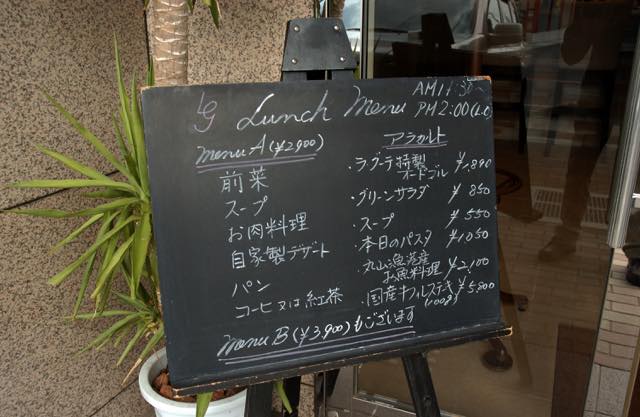 LG Lunch Menu
AM11:30~
PM2:00(L.O)
menu A (¥2,900)
前菜
スープ
お肉料理
自家製デザート
パン
コーヒー又は紅茶
アラカルト
・ラグーテ特製オードブル ¥1,890
・グリーンサラダ ¥850
・スープ ¥550
・本日のパスタ ¥1,050
・丸山漁港産お魚料理 ¥2,100
・国産牛フィレステーキ(100g) ¥5,800
menu B (¥3,900)もございます